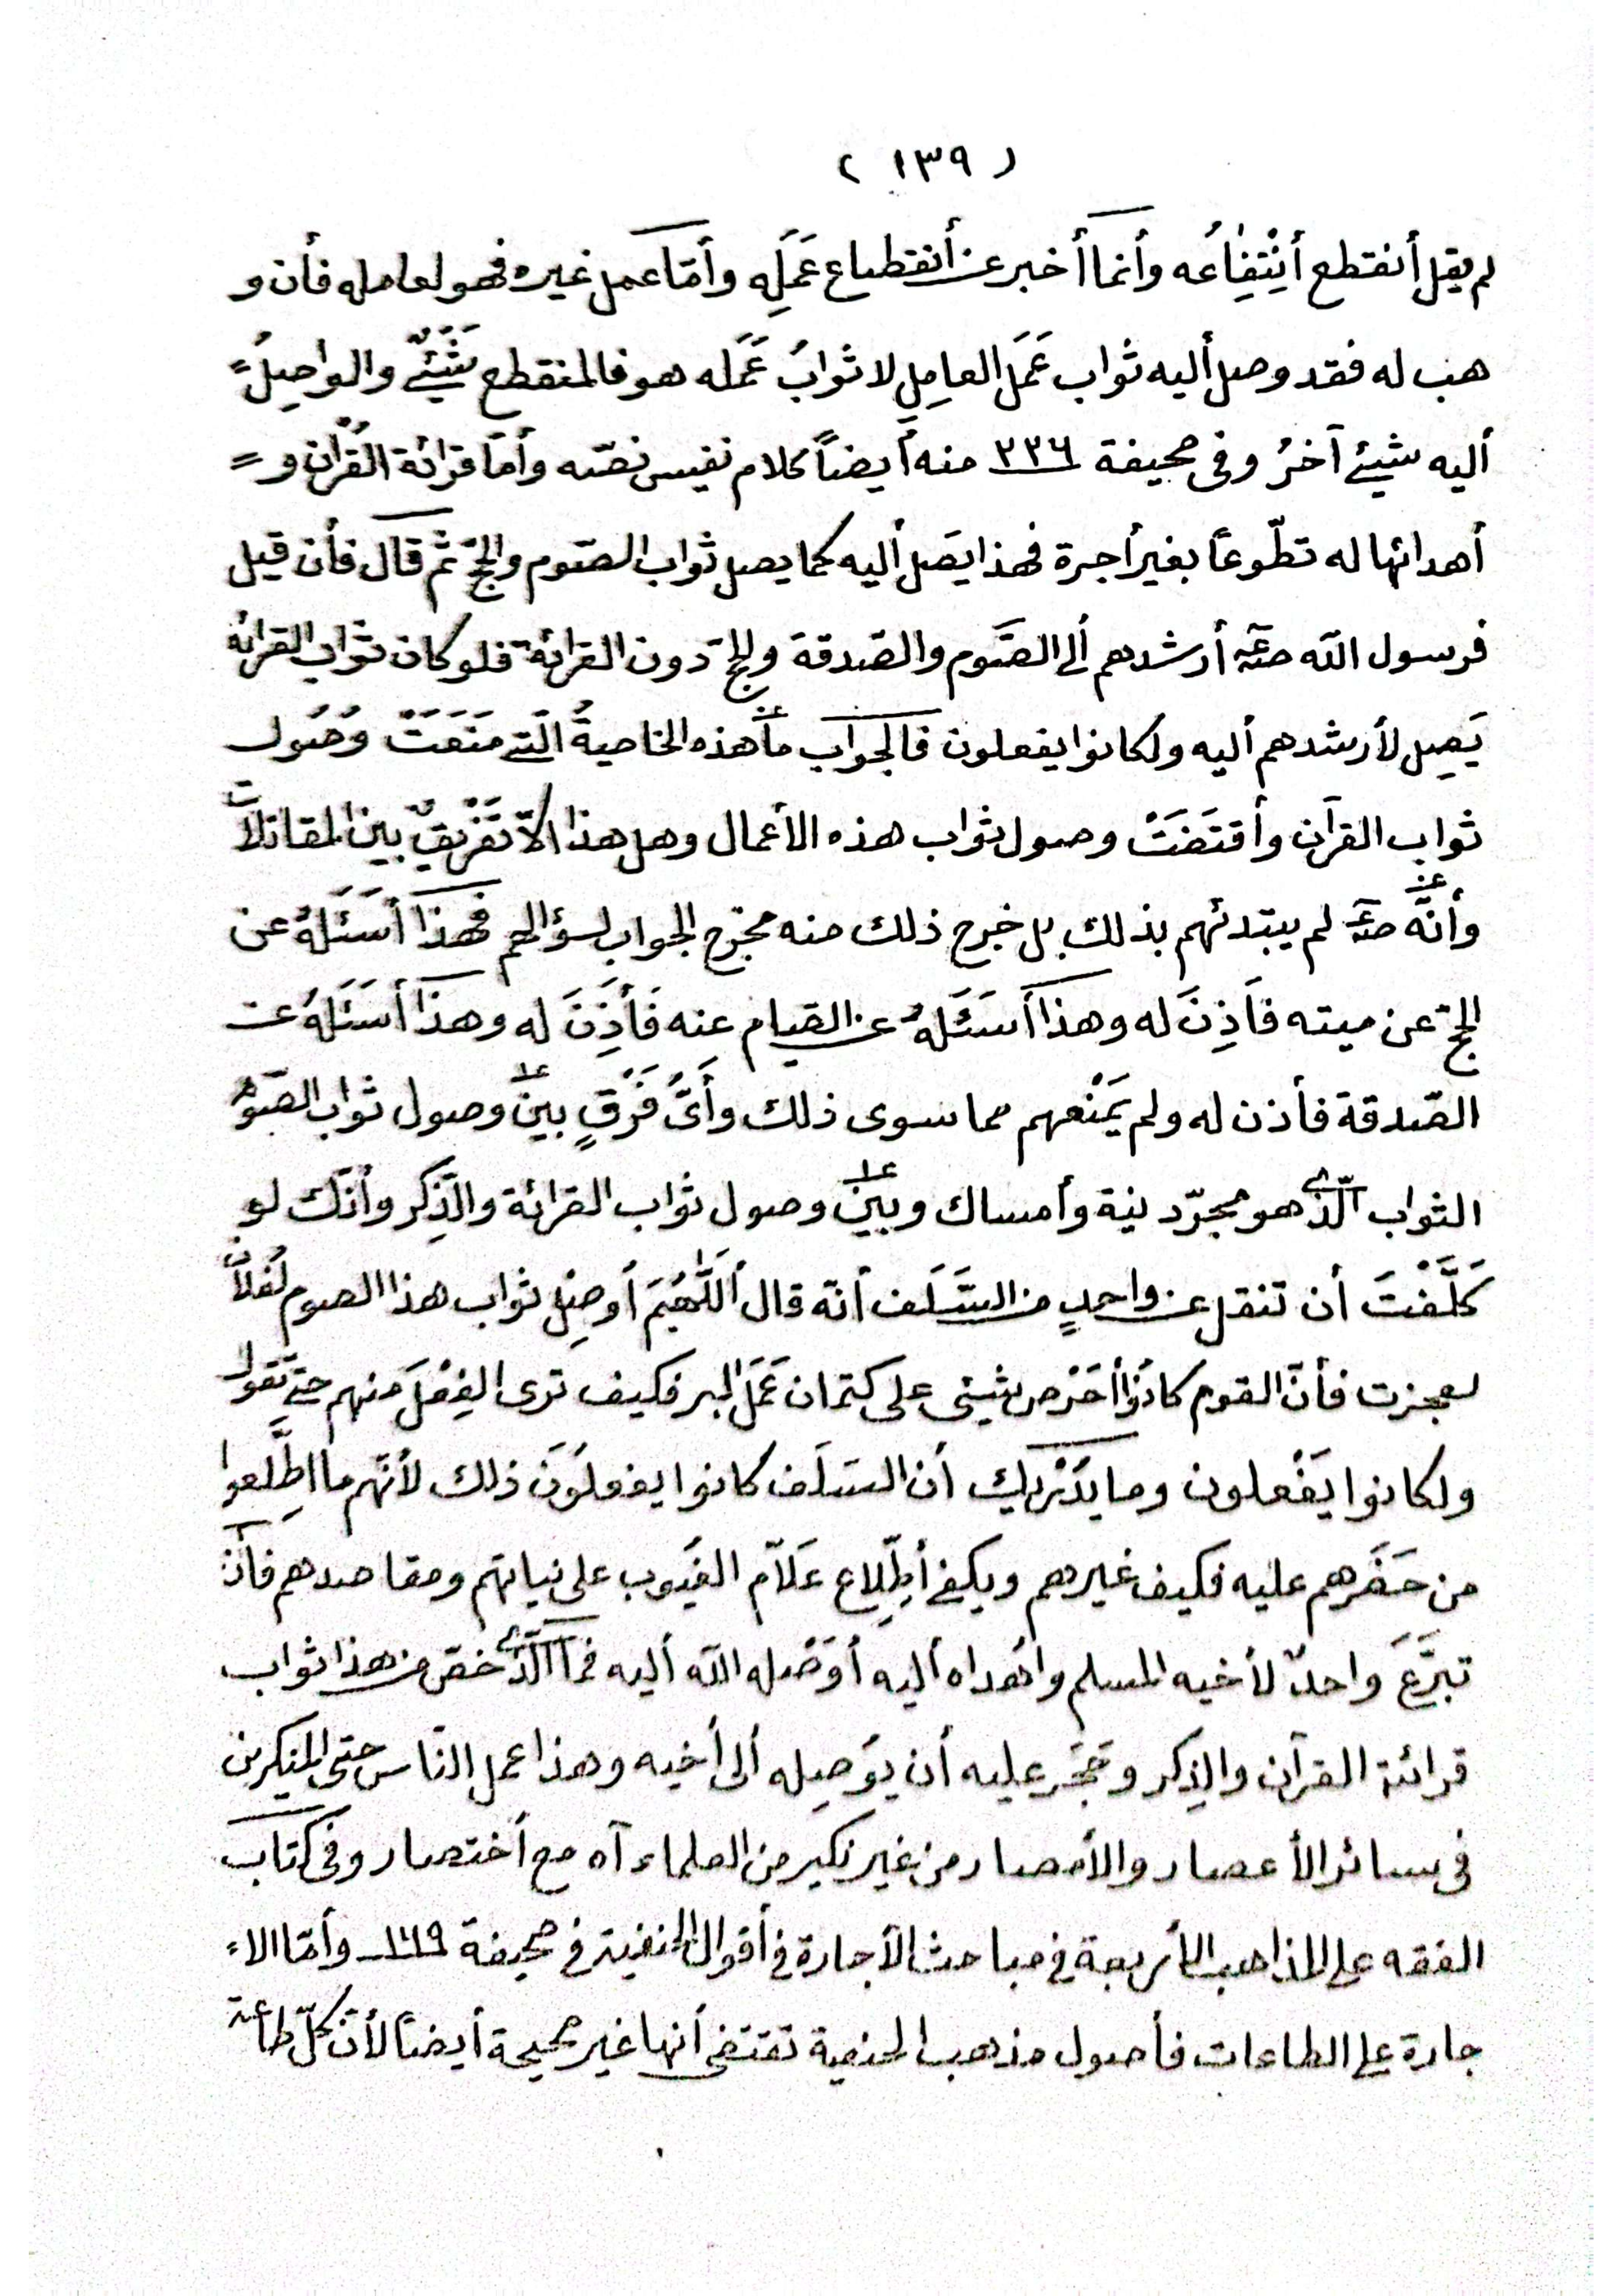 ( ١٣٩ )
لم يقل أنقطع أنْتِفِاعُه وأنما أخبر عن أنقطاع عَمَلِه وأمّا عمل غيره فهو لعامله فأن و
هب له فقد وصل أليه ثواب عَمَل العامِلِ لا ثوابُ عَمَله هو فالمنقطع شَيْئٌ والواصِلُ =
أليه شيئ آخرُ وفى صحيفة ٢٣٦ منه أيضاً كلام نفيس نصّه وأمّا قرائة القُرْآن و =
أهدائها له تطّوعاً بغير أجرة فهذا يَصَل أليه كما يصل ثواب الصّوم والحجّ ثم قال فأن قيل
فرسول الله صلعم أرشدهم ألى الصَّوم والصّدقة والحجّ دون القرائة فلو كان ثواب القرائة
يَصِل لأرشدهم أليه ولكانوا يفعلون فالجواب ما هذه الخاصيةُ الَّتى مَنَعَتْ وُصُول
ثواب القرآن وأقتَضَتْ وصول ثواب هذه الأعمال وهل هذا الاّ تَفْرِيقٌ بين المقاثلات
وأنَّه صلعم لم يبتدئهم بذلك بل خرج ذلك منه مخرج الجواب لسؤالهم فهذا أسَئَلهُ عن
الحجّ عن ميته فَأذِنَ له وهذا أسَئَلَهُ عن الصيام عنه فَأَذِنَ له وهذا أسَئَلَهُ عن
الصّدقة فأذن له ولم يَمْنَعهم مما سوى ذلك وأَىُّ فَرْقٍ بين وصول ثواب الصّوم
الثواب الّذى هو مجرّد نية وأمساك وبين وصول ثواب القرائة والذِّكر وأنّك لو
كَلَّفْتَ أن تنقل عن واحدٍ من السَّلَف أنه قال أللَّهُمَّ أوصِل ثواب هذا الصوم لفُلان
لعجزت فأنّ القوم كانُوا أحْرص شيئى على كتمان عَمَل البر فكيف ترى الفِعْلَ منهم حتى تقول
ولكانوا يَفْعلون وما يُدْريك أن السَلَف كانوا يفعلُوَن ذلك لأنّهم ما اطَّلِعوا
من حَضَرهم عليه فكيف غيرهم ويكفى أطِّلِاع عَلاّم الغيُوب على نياتهم ومقاصدهم فأن
تبرَّعَ واحدٌ لأخيه المسلم واهداه أليه أوَصْله الله أليه فما الَّذى خصّ من هذا ثواب
قرائة القرآن والذِكر وحَجَر عليه أن يوَصِله ألى أخيه وهذا عمل النّاس حتى المنكرين
فى سائر الأعصار والأمصار من غير نكير من العلماء آه مع أختصار وفى كتاب
الفقه على المذاهب الأربعة فى مباحث الأجارة فى أقوال الحنفية فى صحيفة ١٦٩ وأمّا الاء
جارة على الطاعات فأصول مذهب الحنفية تقتضى أنها غير صحيحة أيضاً لأنّ كلّ طاعة